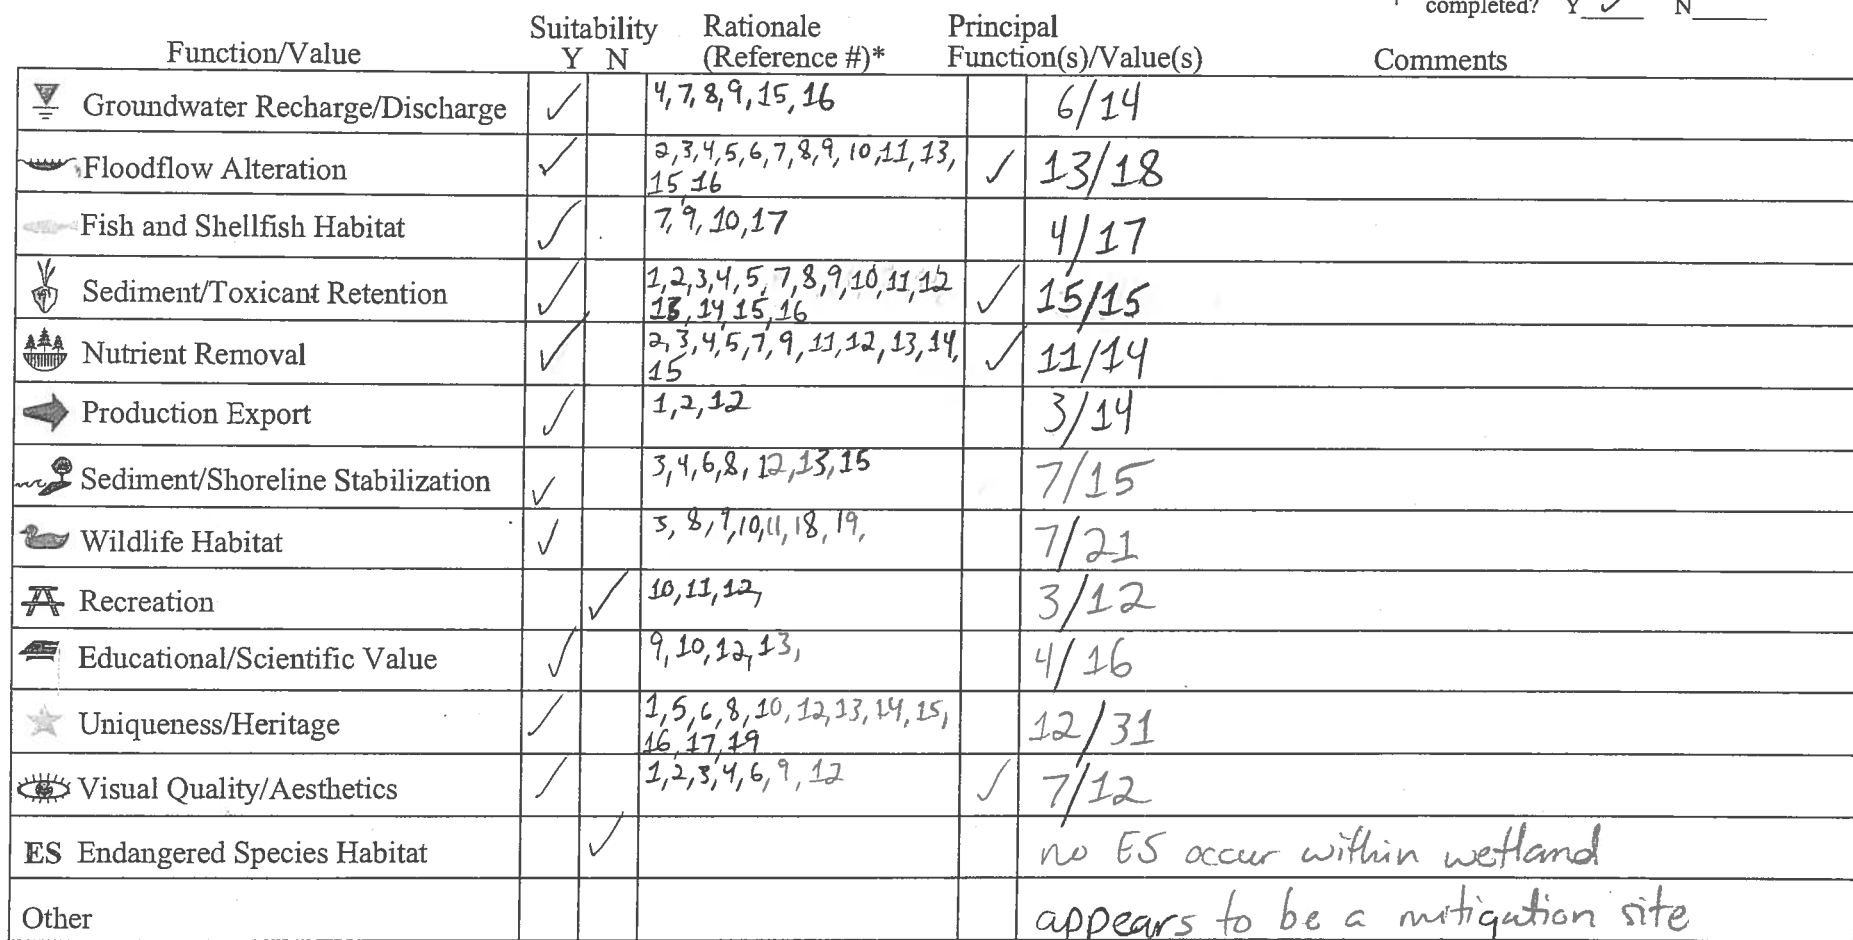 completed? Y ✓ N
Suitability Rationale Principal
Function/Value Y N (Reference #)* Function(s)/Value(s) Comments
Groundwater Recharge/Discharge ✓ 4,7,8,9,15,16 6/14
Floodflow Alteration ✓ 2,3,4,5,6,7,8,9,10,11,13, ✓ 13/18
15,16
Fish and Shellfish Habitat ✓ 7,9,10,17 4/17
Sediment/Toxicant Retention ✓ 1,2,3,4,5,7,8,9,10,11,12 ✓ 15/15
13,14,15,16
Nutrient Removal ✓ 2,3,4,5,7,9,11,12,13,14, ✓ 11/14
15
Production Export ✓ 1,2,12 3/14
Sediment/Shoreline Stabilization ✓ 3,4,6,8,12,13,15 7/15
Wildlife Habitat ✓ 3,8,9,10,11,18,19, 7/21
Recreation ✓ 10,11,12, 3/12
Educational/Scientific Value ✓ 9,10,12,13, 4/16
Uniqueness/Heritage ✓ 1,5,6,8,10,12,13,14,15, 12/31
16,17,19
Visual Quality/Aesthetics ✓ 1,2,3,4,6,9,12 ✓ 7/12
ES Endangered Species Habitat ✓ no ES occur within wetland
Other appears to be a mitigation site